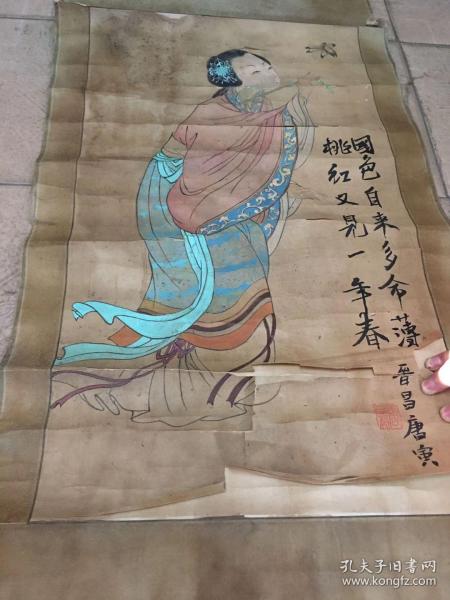 國色自来多命薄
桃红又見一年春
晉昌唐寅
孔夫子旧书网
www.kongfz.com